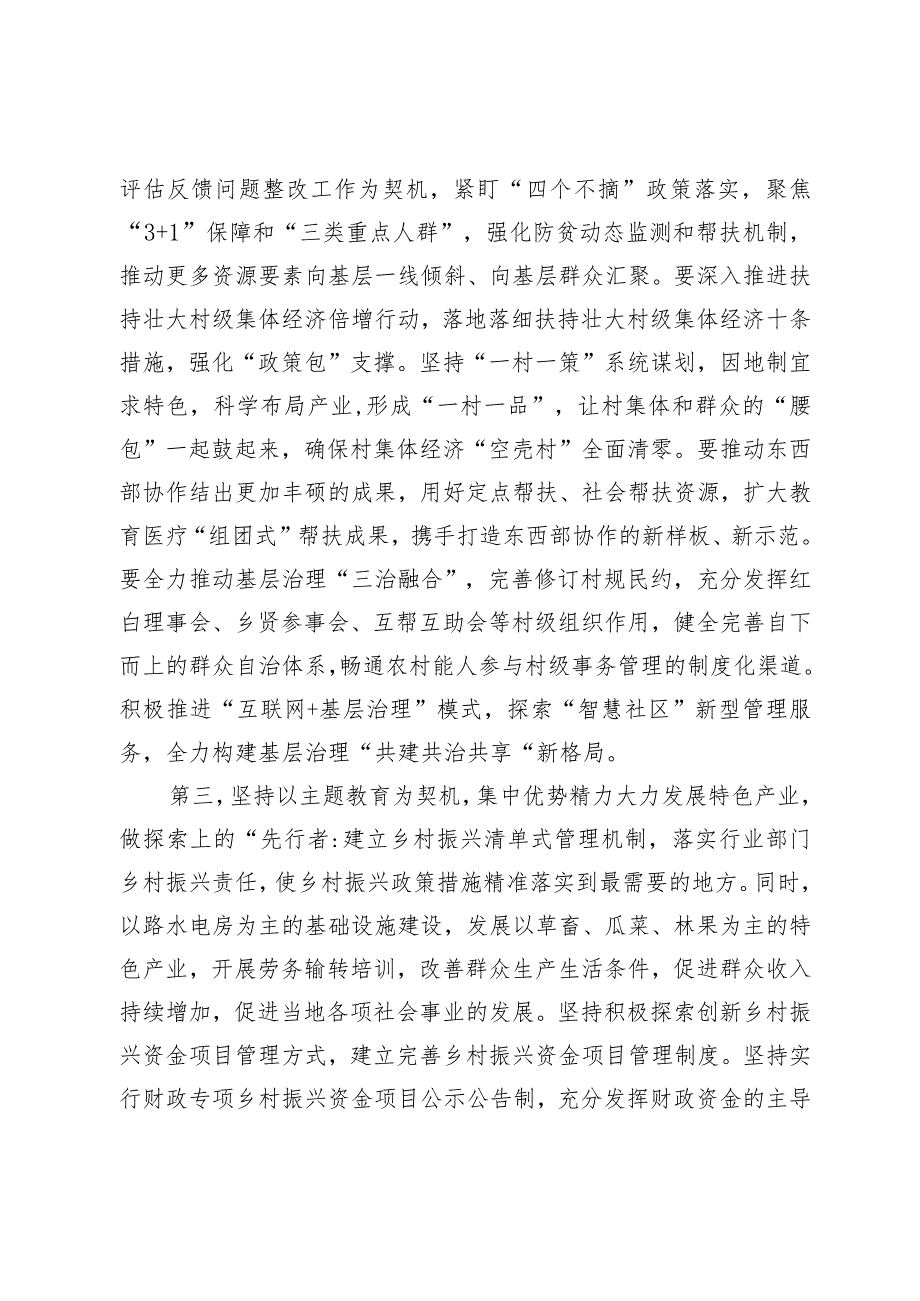 评估反馈问题整改工作为契机，紧盯“四个不摘”政策落实，聚焦
“3+1”保障和“三类重点人群”，强化防贫动态监测和帮扶机制，
推动更多资源要素向基层一线倾斜、向基层群众汇聚。要深入推进扶
持壮大村级集体经济倍增行动，落地落细扶持壮大村级集体经济十条
措施，强化“政策包”支撑。坚持“一村一策”系统谋划，因地制宜
求特色，科学布局产业,形成“一村一品”，让村集体和群众的“腰
包”一起鼓起来，确保村集体经济“空壳村”全面清零。要推动东西
部协作结出更加丰硕的成果，用好定点帮扶、社会帮扶资源，扩大教
育医疗“组团式”帮扶成果，携手打造东西部协作的新样板、新示范。
要全力推动基层治理“三治融合”，完善修订村规民约，充分发挥红
白理事会、乡贤参事会、互帮互助会等村级组织作用，健全完善自下
而上的群众自治体系,畅通农村能人参与村级事务管理的制度化渠道。
积极推进“互联网+基层治理”模式，探索“智慧社区”新型管理服
务，全力构建基层治理“共建共治共享“新格局。
第三,坚持以主题教育为契机,集中优势精力大力发展特色产业，
做探索上的“先行者:建立乡村振兴清单式管理机制，落实行业部门
乡村振兴责任,使乡村振兴政策措施精准落实到最需要的地方。同时，
以路水电房为主的基础设施建设，发展以草畜、瓜菜、林果为主的特
色产业，开展劳务输转培训，改善群众生产生活条件，促进群众收入
持续增加，促进当地各项社会事业的发展。坚持积极探索创新乡村振
兴资金项目管理方式，建立完善乡村振兴资金项目管理制度。坚持实
行财政专项乡村振兴资金项目公示公告制，充分发挥财政资金的主导